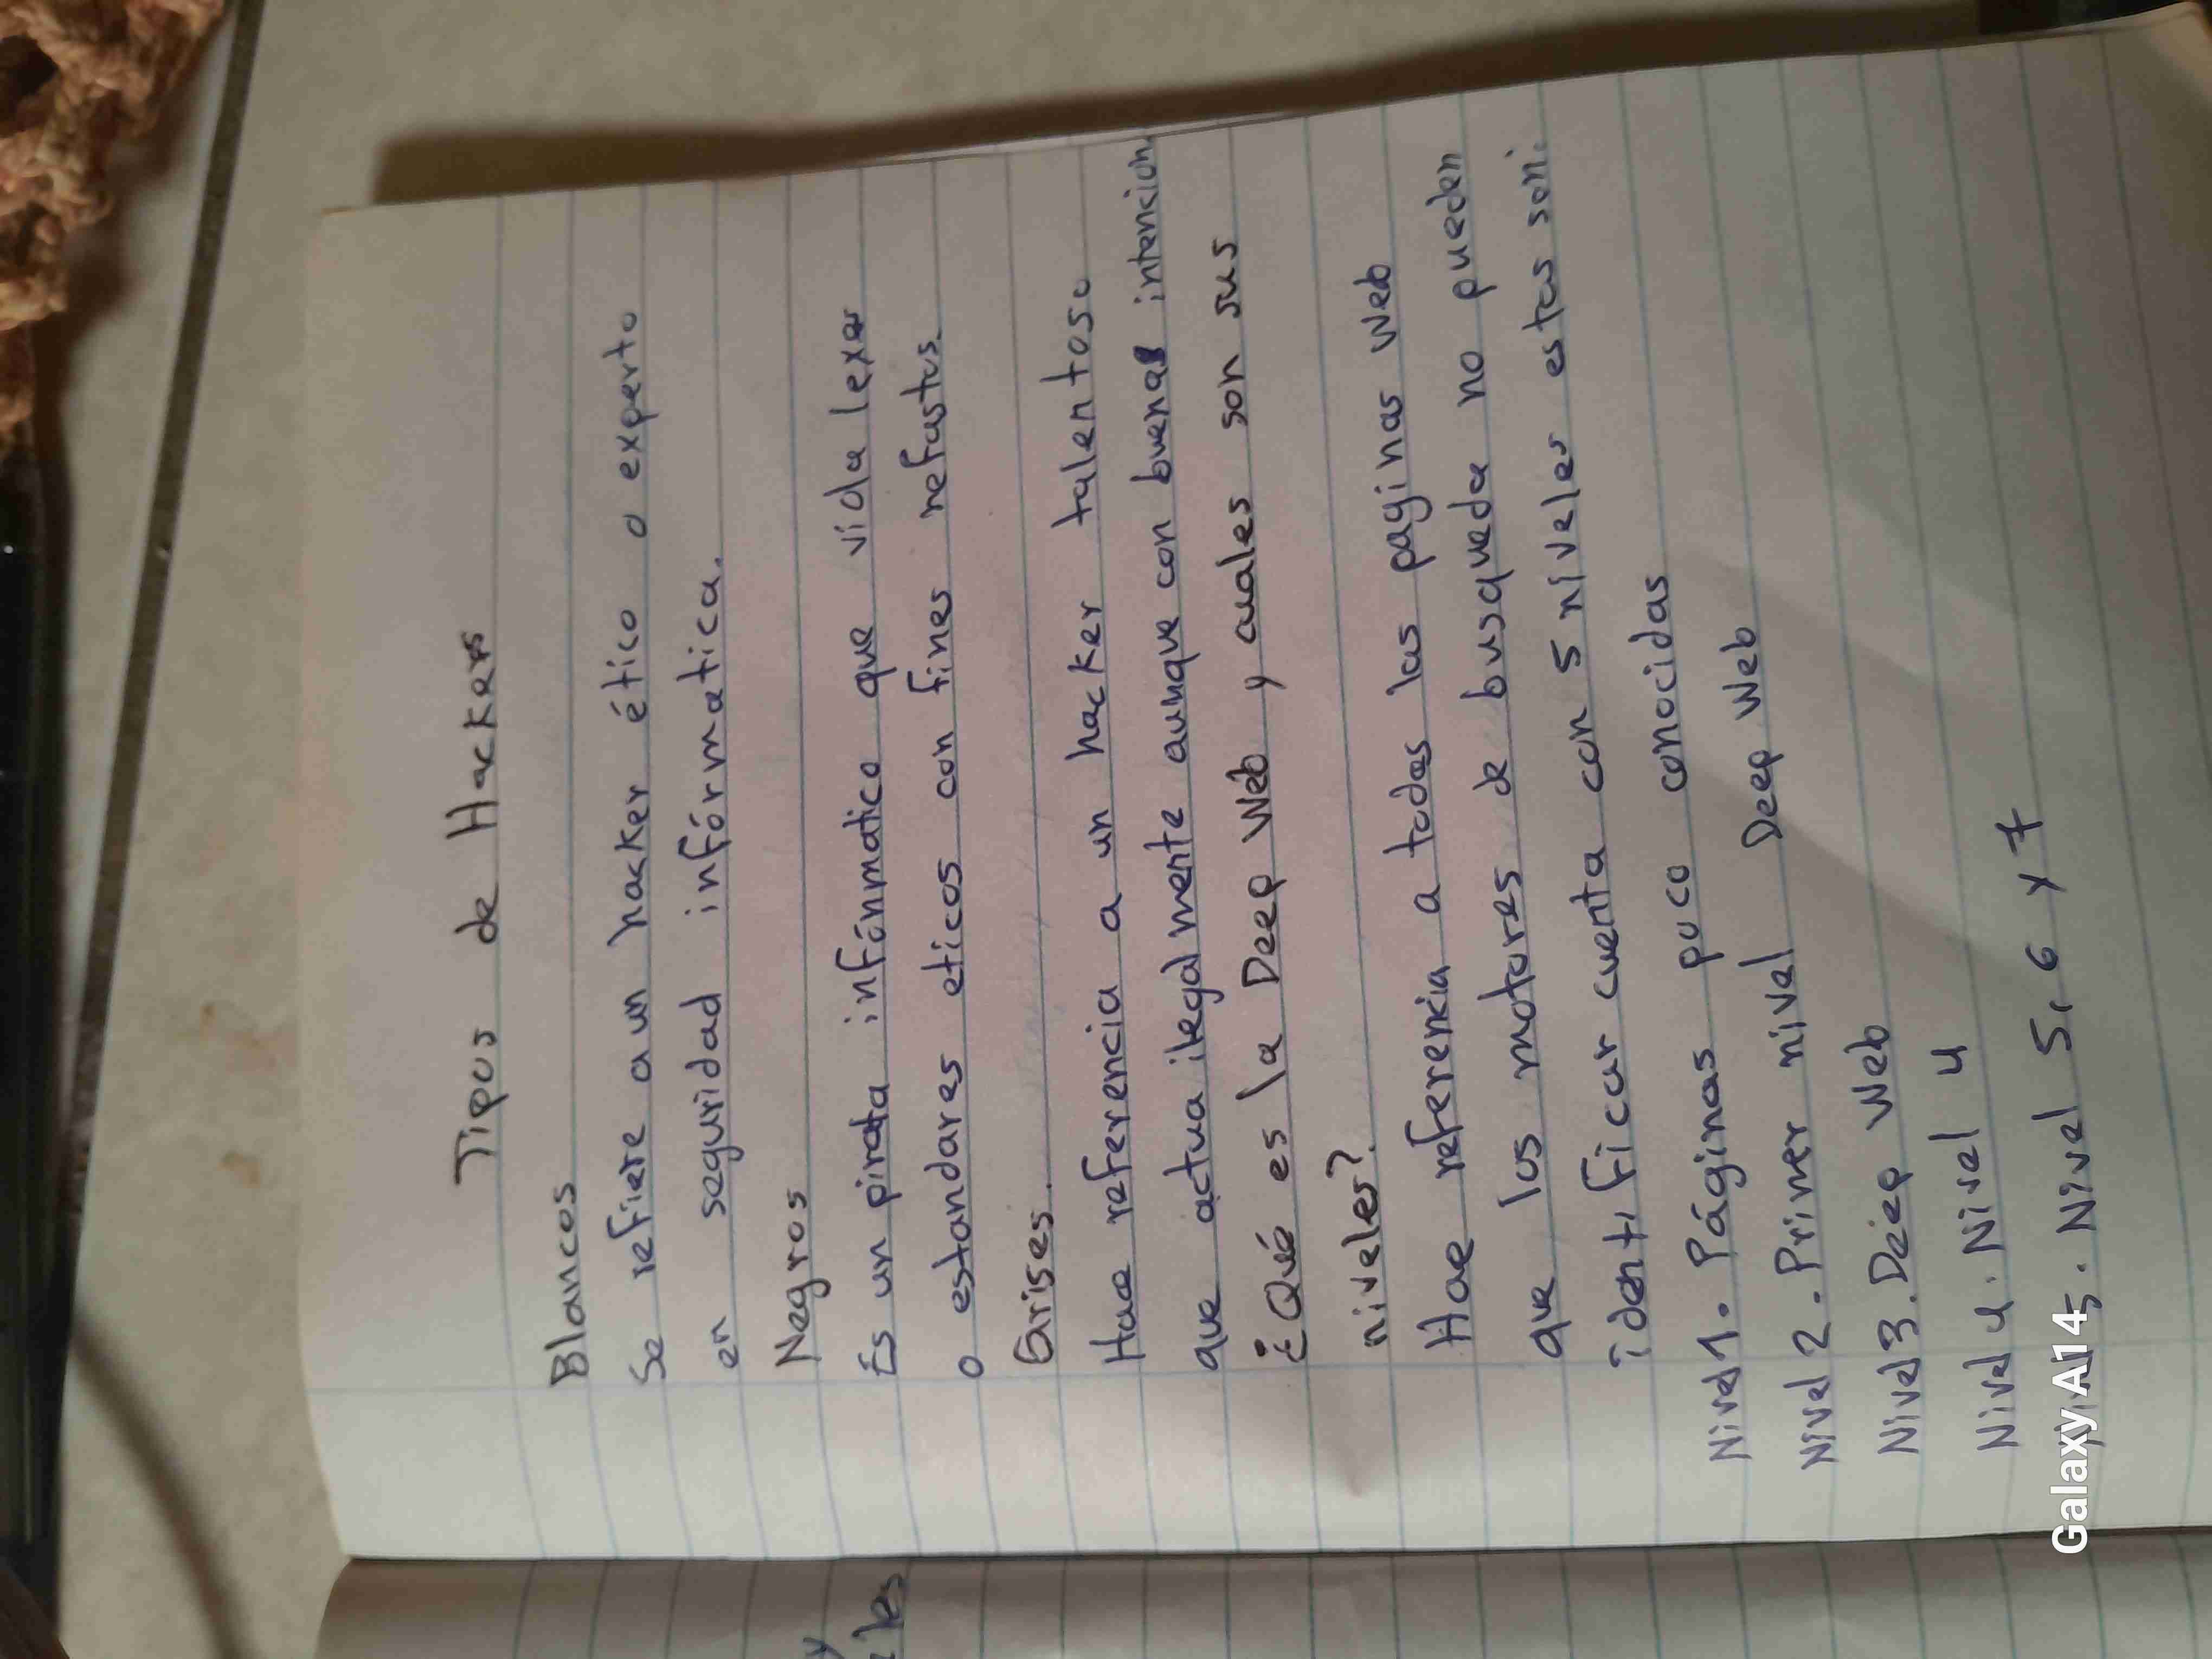 Tipos de Hackers
Blancos
Se refiere a un hacker ético o experto
en seguridad infórmatica.
Negros
Es un pirata infórmatico que viola lexes
o estandares eticos con fines nefastos.
Grises.
Hace referencia a un hacker talentoso
que actua ilegalmente aunque con buenas intencion
¿Qué es la Deep Web y cuales son sus
niveles?
Hace referencia a todas las paginas web
que los motores de busqueda no pueden
identificar cuenta con 5 niveles estos son:
Nivel 1. Páginas poco conocidas
Nivel 2. Primer nivel Deep Web
Nivel 3. Deep Web
Nivel 4. Nivel 4
5. Nivel 5, 6 y 7
Galaxy A14